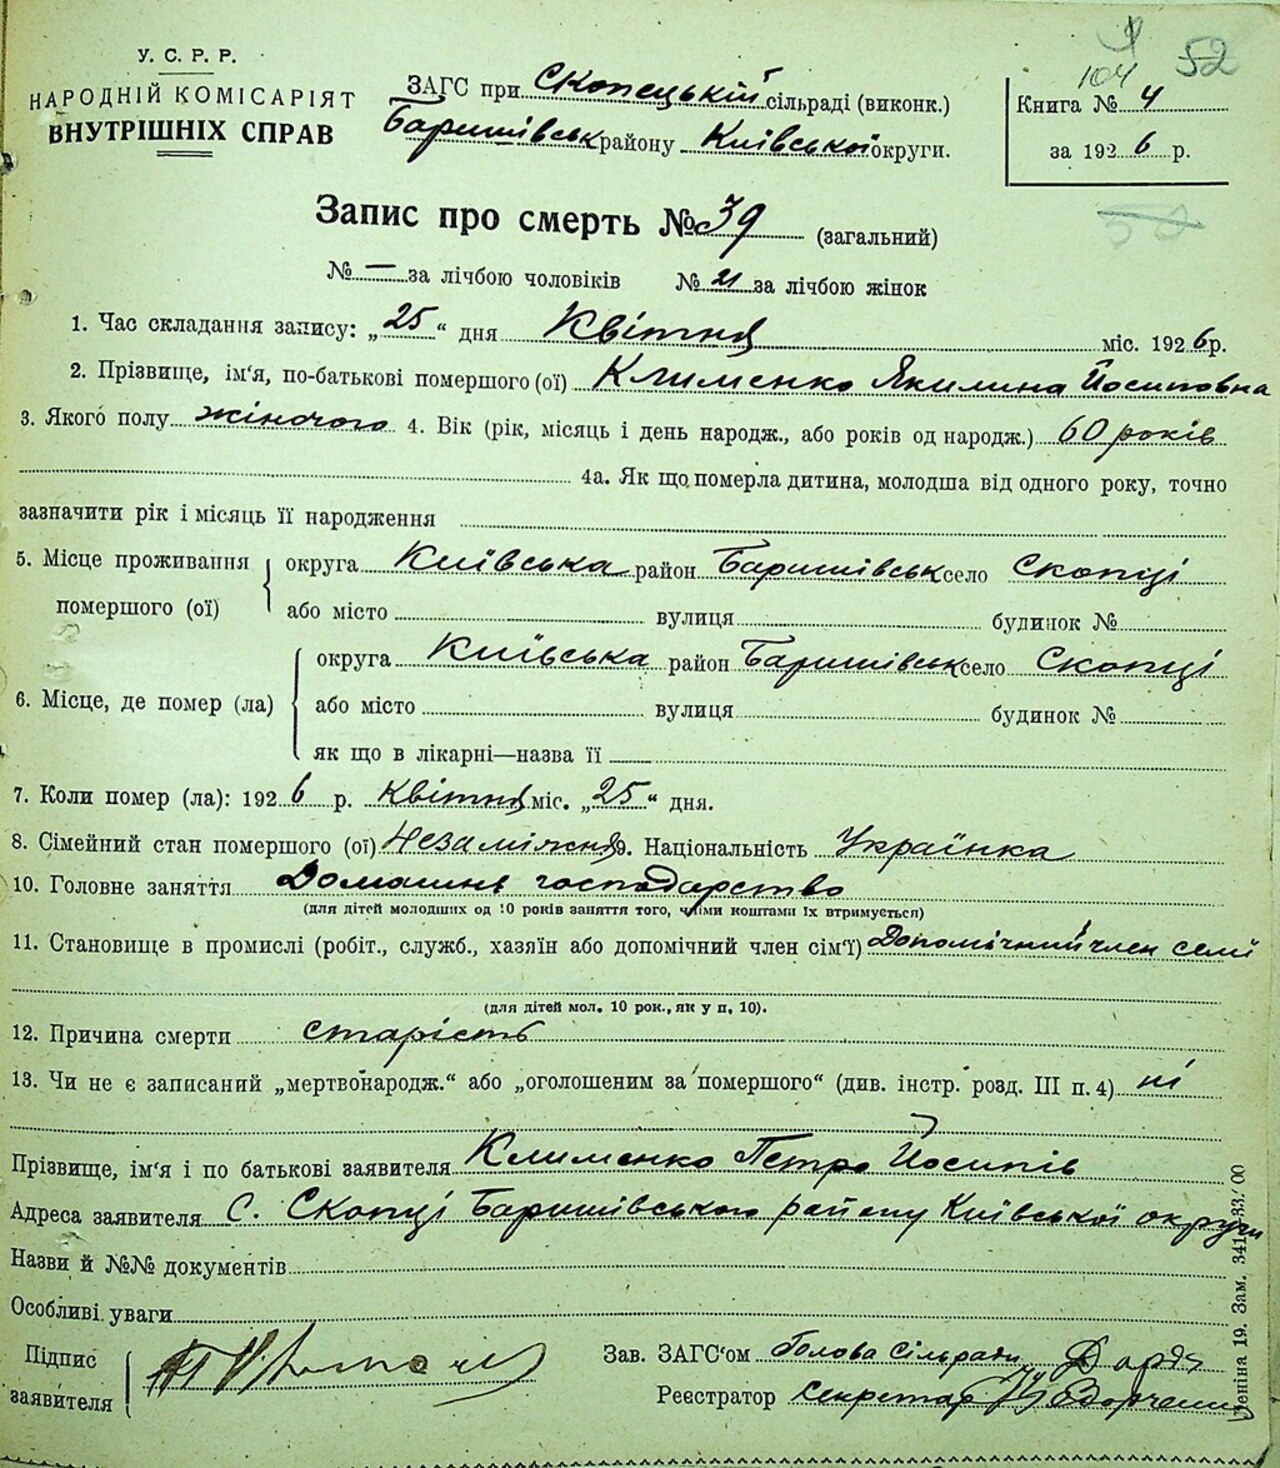 104 52
У. С. Р. Р.
НАРОДНІЙ КОМІСАРІЯТ
ВНУТРІШНІХ СПРАВ
ЗАГС при Скопецькій сільраді (виконк.)
Баришівськ району Київської округи.
Книга № 4
за 1926 р.
Запис про смерть № 39 (загальний)
№ — за лічбою чоловіків № 21 за лічбою жінок
1. Час складання запису: „25“ дня Квітня міс. 1926 р.
2. Прізвище, ім‘я, по-батькові помершого (ої) Клименко Якилина Йосиповна
3. Якого полу жіночого 4. Вік (рік, місяць і день народж., або років од народж.) 60 років
4а. Як що померла дитина, молодша від одного року, точно
зазначити рік і місяць її народження
5. Місце проживання помершого (ої) округа Київська район Баришівськ село Скопці
або місто вулиця будинок №
6. Місце, де помер (ла) округа Київська район Баришівськ село Скопці
або місто вулиця будинок №
як що в лікарні—назва її
7. Коли помер (ла): 1926 р. Квітня міс. „25“ дня.
8. Сімейний стан помершого (ої) Незаміжня 9. Національність Українка
10. Головне заняття Домашнє господарство
(для дітей молодших од 10 років заняття того, чиїми коштами їх втримується)
11. Становище в промислі (робіт., служб., хазяїн або допомічний член сім‘ї) Допомічний член семї
(для дітей мол. 10 рок., як у п. 10).
12. Причина смерти старість
13. Чи не є записаний „мертвонародж.“ або „оголошеним за помершого“ (див. інстр. розд. III п. 4) ні
Прізвище, ім‘я і по батькові заявителя Клименко Петро Йосипів
Адреса заявителя С. Скопці Баришівського району Київської округи
Назви й №№ документів
Особливі уваги
Підпис заявителя
Зав. ЗАГС‘ом Голова Сільради
Реєстратор Секретар
19. Зам. 341